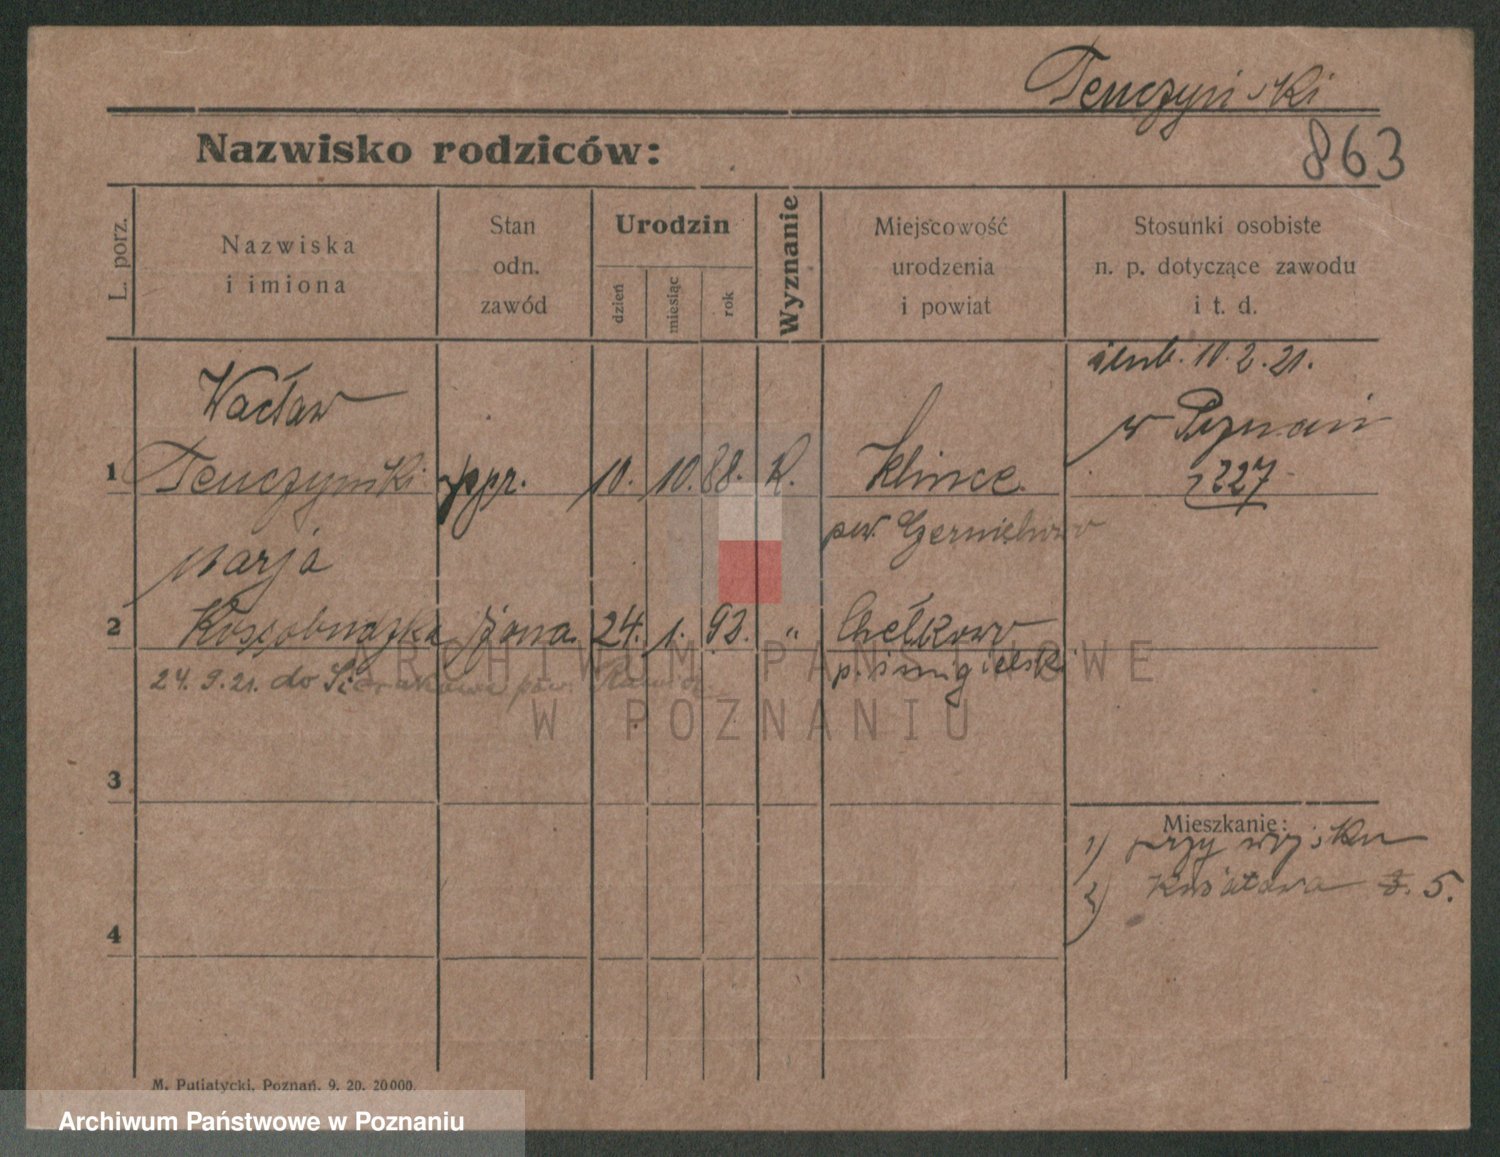 Tenczyński
863
Nazwisko rodziców:
L. porz.
Nazwiska
i imiona
Stan
odn.
zawód
Urodzin
dzień
miesiąc
rok
Wyznanie
Miejscowość
urodzenia
i powiat
Stosunki osobiste
n. p. dotyczące zawodu
i t. d.
ślub. 10.2.21.
w Poznań
227
Wacław
1 Tenczyński ppr. 10. 10. 88. K. Klince
pow. Czerniehowo
Marja
2 Kossobudzka żona 24. 1. 92. " Chełkowo
24.9.21. do Sierakowa pow. p. śmigielski
3
4
Mieszkanie:
1) przy wojsku
2) 5.
M. Putiatycki, Poznań. 9. 20. 20000.
ARCHIWUM PAŃSTWOWE
W POZNANIU
Archiwum Państwowe w Poznaniu